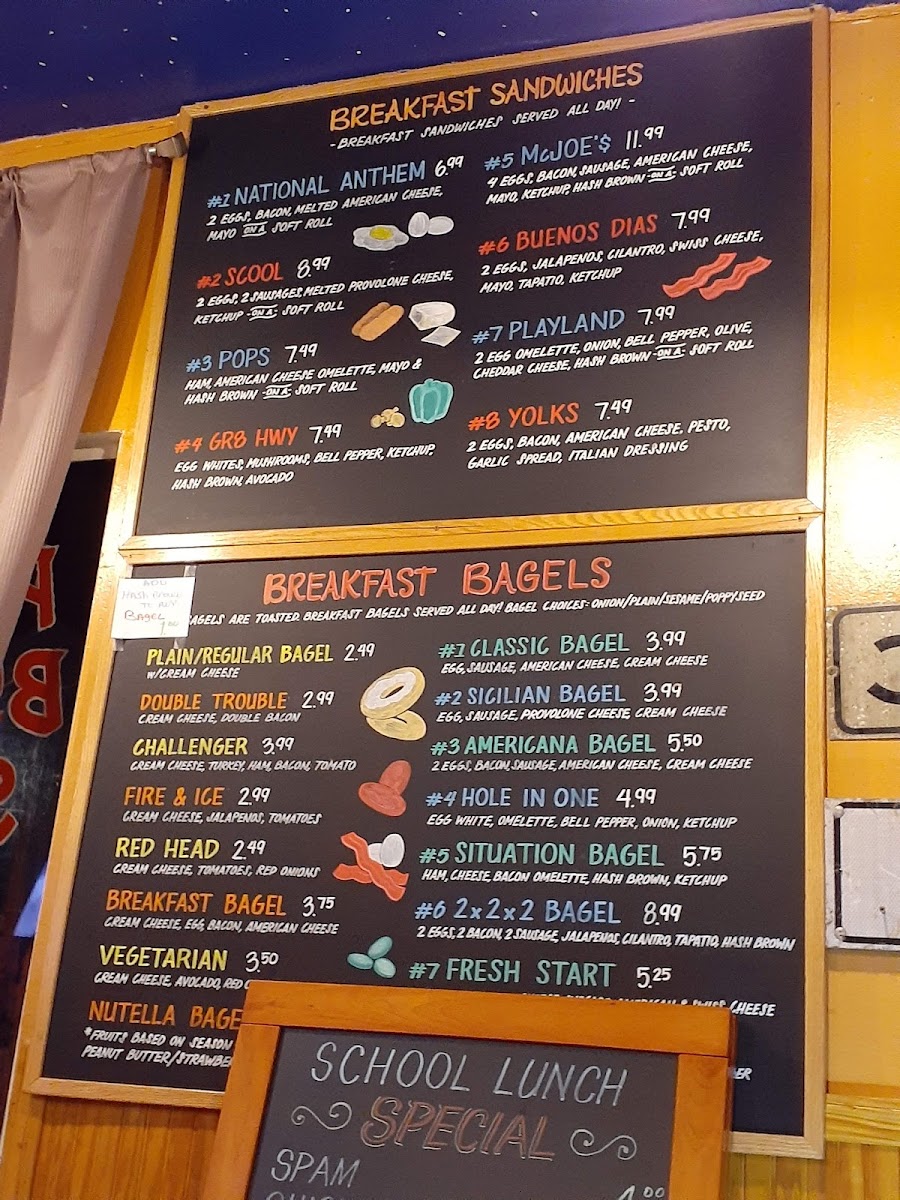 BREAKFAST SANDWICHES
- BREAKFAST SANDWICHES SERVED ALL DAY! -
#1 NATIONAL ANTHEM 6.99
2 EGGS, BACON, MELTED AMERICAN CHEESE,
MAYO ON A SOFT ROLL
#2 SCOOL 8.99
2 EGGS, 2 SAUSAGES, MELTED PROVOLONE CHEESE,
KETCHUP -ON A- SOFT ROLL
#3 POPS 7.49
HAM, AMERICAN CHEESE OMELETTE, MAYO &
HASH BROWN -ON A- SOFT ROLL
#4 GR8 HWY 7.49
EGG WHITES, MUSHROOMS, BELL PEPPER, KETCHUP,
HASH BROWN, AVOCADO
#5 McJOE'$ 11.99
4 EGGS, BACON, SAUSAGE, AMERICAN CHEESE,
MAYO, KETCHUP, HASH BROWN -ON A- SOFT ROLL
#6 BUENOS DIAS 7.99
2 EGGS, JALAPENOS, CILANTRO, SWISS CHEESE,
MAYO, TAPATIO, KETCHUP
#7 PLAYLAND 7.99
2 EGG OMELETTE, ONION, BELL PEPPER, OLIVE,
CHEDDAR CHEESE, HASH BROWN -ON A- SOFT ROLL
#8 YOLKS 7.49
2 EGGS, BACON, AMERICAN CHEESE. PESTO,
GARLIC SPREAD, ITALIAN DRESSING
BREAKFAST BAGELS
BAGELS ARE TOASTED BREAKFAST BAGELS SERVED ALL DAY! BAGEL CHOICES: ONION/PLAIN/SESAME/POPPYSEED
ADD
HASH BROWN
TO ANY
BAGEL
1.00
PLAIN/REGULAR BAGEL 2.49
W/CREAM CHEESE
DOUBLE TROUBLE 2.99
CREAM CHEESE, DOUBLE BACON
CHALLENGER 3.99
CREAM CHEESE, TURKEY, HAM, BACON, TOMATO
FIRE & ICE 2.99
CREAM CHEESE, JALAPENOS, TOMATOES
RED HEAD 2.49
CREAM CHEESE, TOMATOES, RED ONIONS
BREAKFAST BAGEL 3.75
CREAM CHEESE, EGG, BACON, AMERICAN CHEESE
VEGETARIAN 3.50
CREAM CHEESE, AVOCADO, RED
NUTELLA BAGE
*FRUITS BASED ON SEASON
PEANUT BUTTER/STRAWBE
#1 CLASSIC BAGEL 3.99
EGG, SAUSAGE, AMERICAN CHEESE, CREAM CHEESE
#2 SICILIAN BAGEL 3.99
EGG, SAUSAGE, PROVOLONE CHEESE, CREAM CHEESE
#3 AMERICANA BAGEL 5.50
2 EGGS, BACON, SAUSAGE, AMERICAN CHEESE, CREAM CHEESE
#4 HOLE IN ONE 4.99
EGG WHITE, OMELETTE, BELL PEPPER, ONION, KETCHUP
#5 SITUATION BAGEL 5.75
HAM, CHEESE, BACON OMELETTE, HASH BROWN, KETCHUP
#6 2x2x2 BAGEL 8.99
2 EGGS, 2 BACON, 2 SAUSAGE, JALAPENOS, CILANTRO, TAPATIO, HASH BROWN
#7 FRESH START 5.25
AMERICAN & SWISS CHEESE
SCHOOL LUNCH
SPECIAL
SPAM